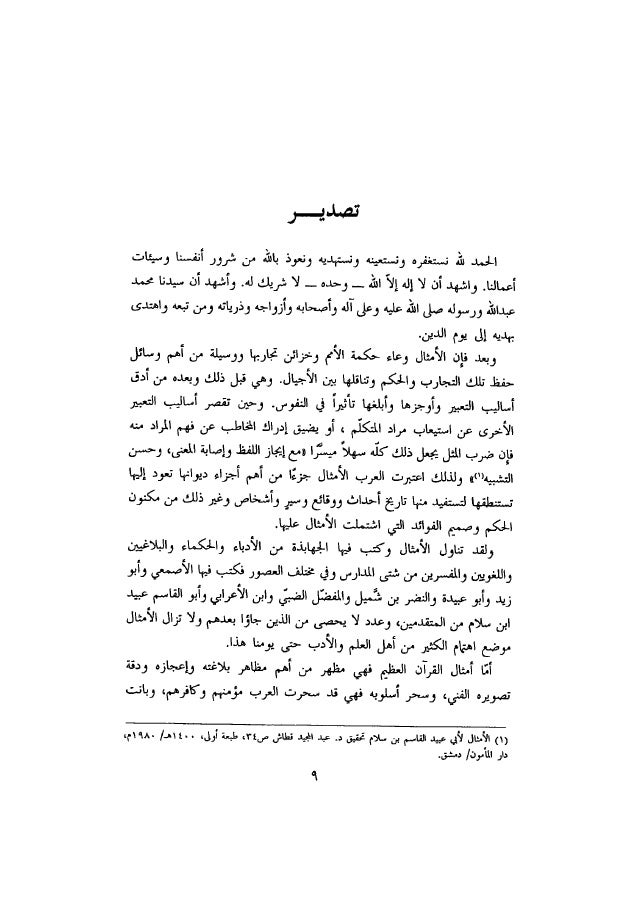 تصديــر
الحمد لله نستغفره ونستعينه ونستهديه ونعوذ بالله من شرور أنفسنا وسيئات
أعمالنا. واشهد أن لا إله إلاّ الله ــ وحده ــ لا شريك له. وأشهد أن سيدنا محمد
عبدالله ورسوله صلى الله عليه وعلى آله وأصحابه وأزواجه وذرياته ومن تبعه واهتدى
بهديه إلى يوم الدين.
وبعد فإن الأمثال وعاء حكمة الأمم وخزائن تجاربها ووسيلة من أهم وسائل
حفظ تلك التجارب والحكم وتناقلها بين الأجيال. وهي قبل ذلك وبعده من أدق
أساليب التعبير وأوجزها وأبلغها تأثيراً في النفوس. وحين تقصر أساليب التعبير
الأخرى عن استيعاب مراد المتكلّم ، أو يضيق إدراك المخاطب عن فهم المراد منه
فإن ضرب المثل يجعل ذلك كلّه سهلاً ميسرًّا «مع إيجاز اللفظ وإصابة المعنى، وحسن
التشبيه(١)» ولذلك اعتبرت العرب الأمثال جزءًا من أهم أجزاء ديوانها تعود إليها
تستنطقها لتستفيد منها تاريخ أحداث ووقائع وسيرٍ وأشخاص وغير ذلك من مكنون
الحكم وصميم الفوائد التي اشتملت الأمثال عليها.
ولقد تناول الأمثال وكتب فيها الجهابذة من الأدباء والحكماء والبلاغيين
واللغويين والمفسرين من شتى المدارس وفي مختلف العصور فكتب فيها الأصمعي وأبو
زيد وأبو عبيدة والنضر بن شُميل والمفضّل الضبيّ وابن الأعرابي وأبو القاسم عبيد
ابن سلام من المتقدمين، وعدد لا يحصى من الذين جاؤا بعدهم ولا تزال الأمثال
موضع اهتمام الكثير من أهل العلم والأدب حتى يومنا هذا.
أمّا أمثال القرآن العظيم فهي مظهر من أهم مظاهر بلاغته وإعجازه ودقة
تصويره الفني، وسحر أسلوبه فهي قد سحرت العرب مؤمنهم وكافرهم، وبانت
(١) الأمثال لأبي عبيد القاسم بن سلام تحقيق د. عبد المجيد قطاش ص٣٤، طبعة أولى، ١٤٠٠هـ/ ١٩٨٠م،
دار المأمون/ دمشق.
٩